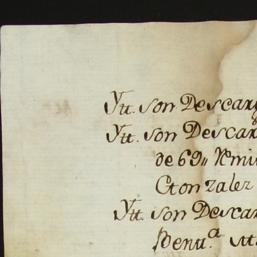 Ytt. son Descarg
Ytt. son Descar
de 69„ Remi
Gonzalez
Ytt. son Descar
Benu.ª